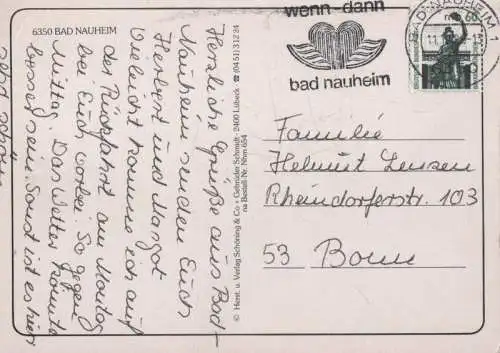 6350 BAD NAUHEIM
Herzliche Grüße aus Bad-
Nauheim senden Euch
Herbert und Margot
Vielleicht komme ich auf
der Rückfahrt am Montag
bei Euch vorbei so gegen
Mittag. Das Wetter könnte
besser sein. Sonst ist es hier
sehr schön
© Herst. u. Verlag Schöning & Co + Gebrüder Schmidt · 2400 Lübeck · ☎ (04 51) 3 12 34
na Bestell-Nr. Nhm 654
wenn-dann
bad nauheim
BAD NAUHEIM 1
60
Familie
Helmut Lenzen
Rheindorferstr. 103
53 Bonn